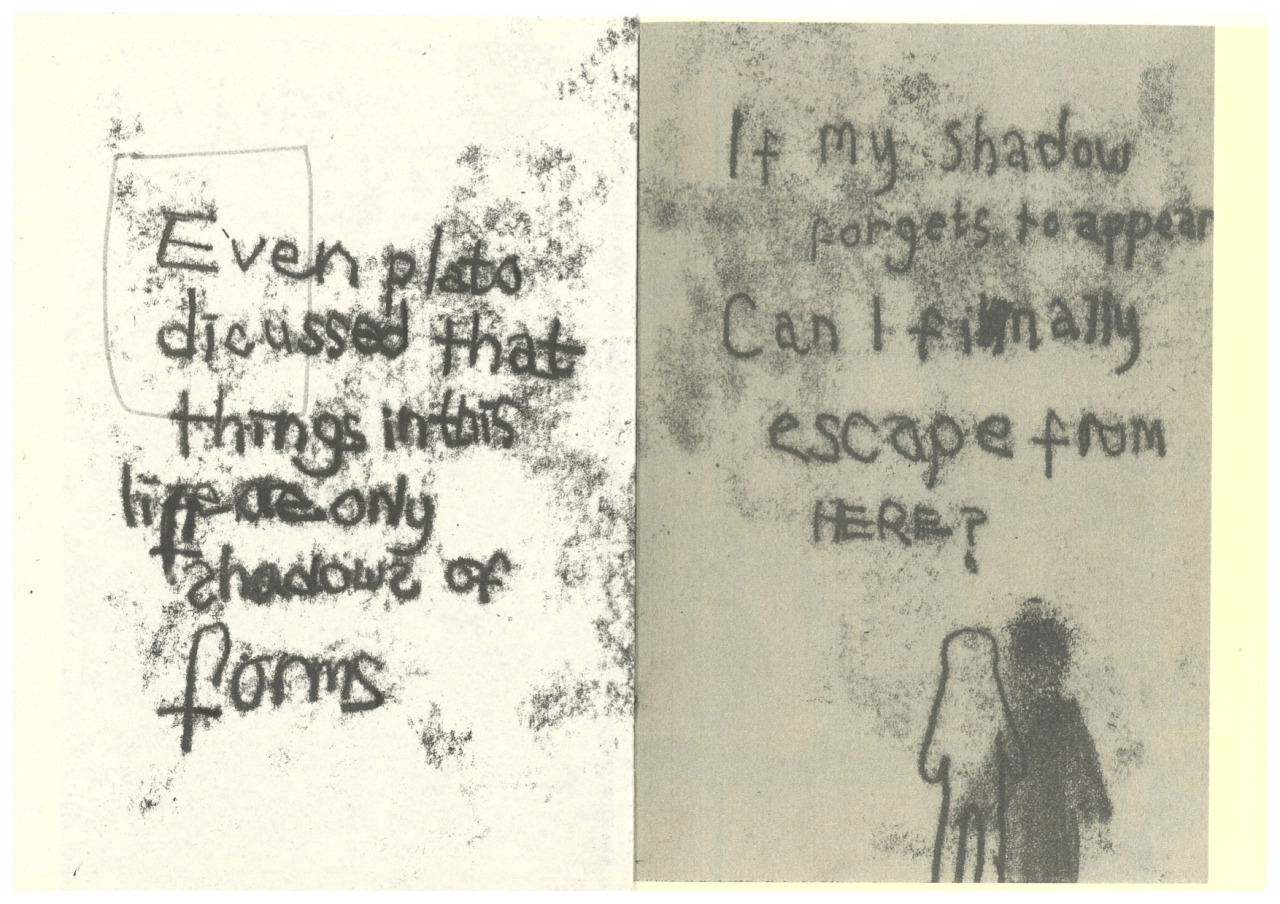 Even plato
dicussed that
things in this
life are only
shadows of
forms
If my shadow
forgets to appear
Can I finnally
escape from
HERE?